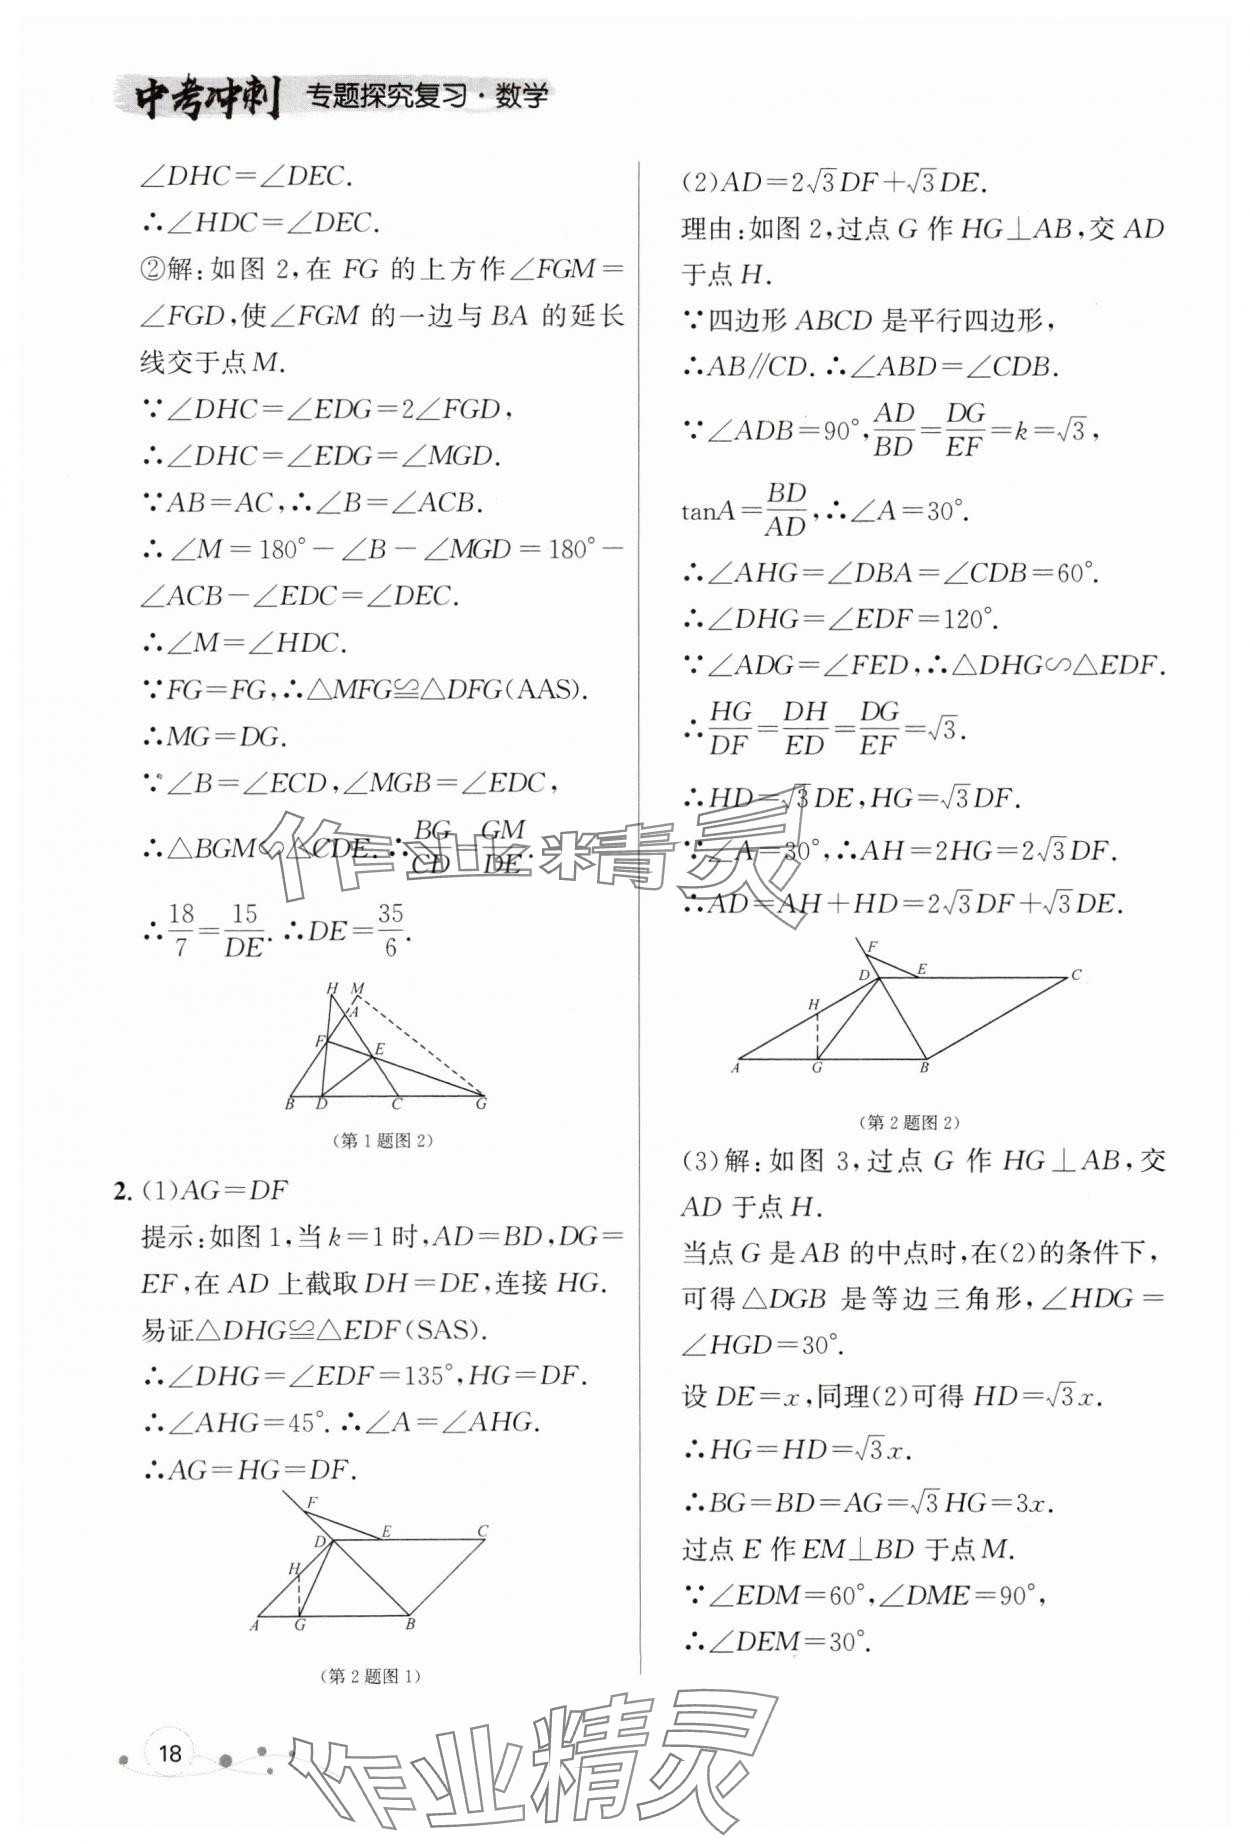 中考冲刺 专题探究复习·数学
∠DHC=∠DEC.
∴∠HDC=∠DEC.
②解:如图2,在 FG 的上方作∠FGM=
∠FGD,使∠FGM 的一边与 BA 的延长
线交于点M.
∵∠DHC=∠EDG=2∠FGD,
∴∠DHC=∠EDG=∠MGD.
∵AB=AC,∴∠B=∠ACB.
∴∠M=180°-∠B-∠MGD=180°-
∠ACB-∠EDC=∠DEC.
∴∠M=∠HDC.
∵FG=FG,∴△MFG≌△DFG(AAS).
∴MG=DG.
∵∠B=∠ECD,∠MGB=∠EDC,
∴△BGM∽△CDE.∴BG/CD=GM/DE.
∴18/7=15/DE.∴DE=35/6.
H M
A
F E
B D C G
(第1题图2)
2.(1)AG=DF
提示:如图1,当k=1时,AD=BD,DG=
EF,在 AD 上截取DH=DE,连接 HG.
易证△DHG≌△EDF(SAS).
∴∠DHG=∠EDF=135°,HG=DF.
∴∠AHG=45°.∴∠A=∠AHG.
∴AG=HG=DF.
F
D E C
H
A G B
(第2题图1)
18
(2)AD=2√3DF+√3DE.
理由:如图2,过点G作HG⊥AB,交AD
于点H.
∵四边形ABCD是平行四边形,
∴AB∥CD.∴∠ABD=∠CDB.
∵∠ADB=90°,AD/BD=DG/EF=k=√3,
tanA=BD/AD,∴∠A=30°.
∴∠AHG=∠DBA=∠CDB=60°.
∴∠DHG=∠EDF=120°.
∵∠ADG=∠FED,∴△DHG∽△EDF.
∴HG/DF=DH/ED=DG/EF=√3.
∴HD=√3DE,HG=√3DF.
∵∠A=30°,∴AH=2HG=2√3DF.
∴AD=AH+HD=2√3DF+√3DE.
F
D E C
H
A G B
(第2题图2)
(3)解:如图3,过点G作HG⊥AB,交
AD于点H.
当点G是AB的中点时,在(2)的条件下,
可得△DGB是等边三角形,∠HDG=
∠HGD=30°.
设DE=x,同理(2)可得HD=√3x.
∴HG=HD=√3x.
∴BG=BD=AG=√3HG=3x.
过点E作EM⊥BD于点M.
∵∠EDM=60°,∠DME=90°,
∴∠DEM=30°.
作业精灵
作业精灵